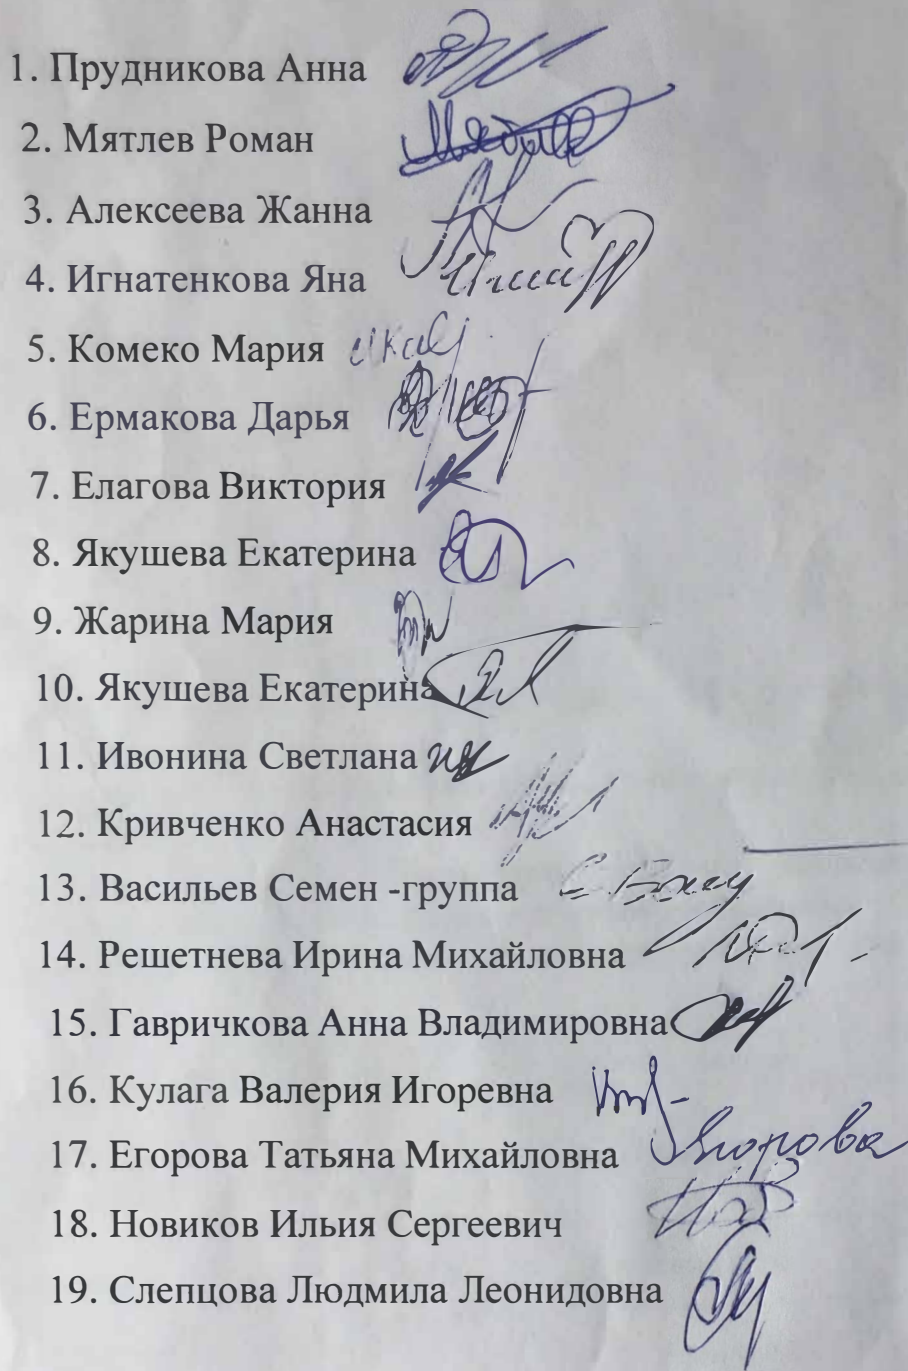 1. Прудникова Анна
2. Мятлев Роман
3. Алексеева Жанна
4. Игнатенкова Яна
5. Комеко Мария
6. Ермакова Дарья
7. Елагова Виктория
8. Якушева Екатерина
9. Жарина Мария
10. Якушева Екатерина
11. Ивонина Светлана
12. Кривченко Анастасия
13. Васильев Семен -группа
14. Решетнева Ирина Михайловна
15. Гавричкова Анна Владимировна
16. Кулага Валерия Игоревна
17. Егорова Татьяна Михайловна Егорова
18. Новиков Ильия Сергеевич
19. Слепцова Людмила Леонидовна